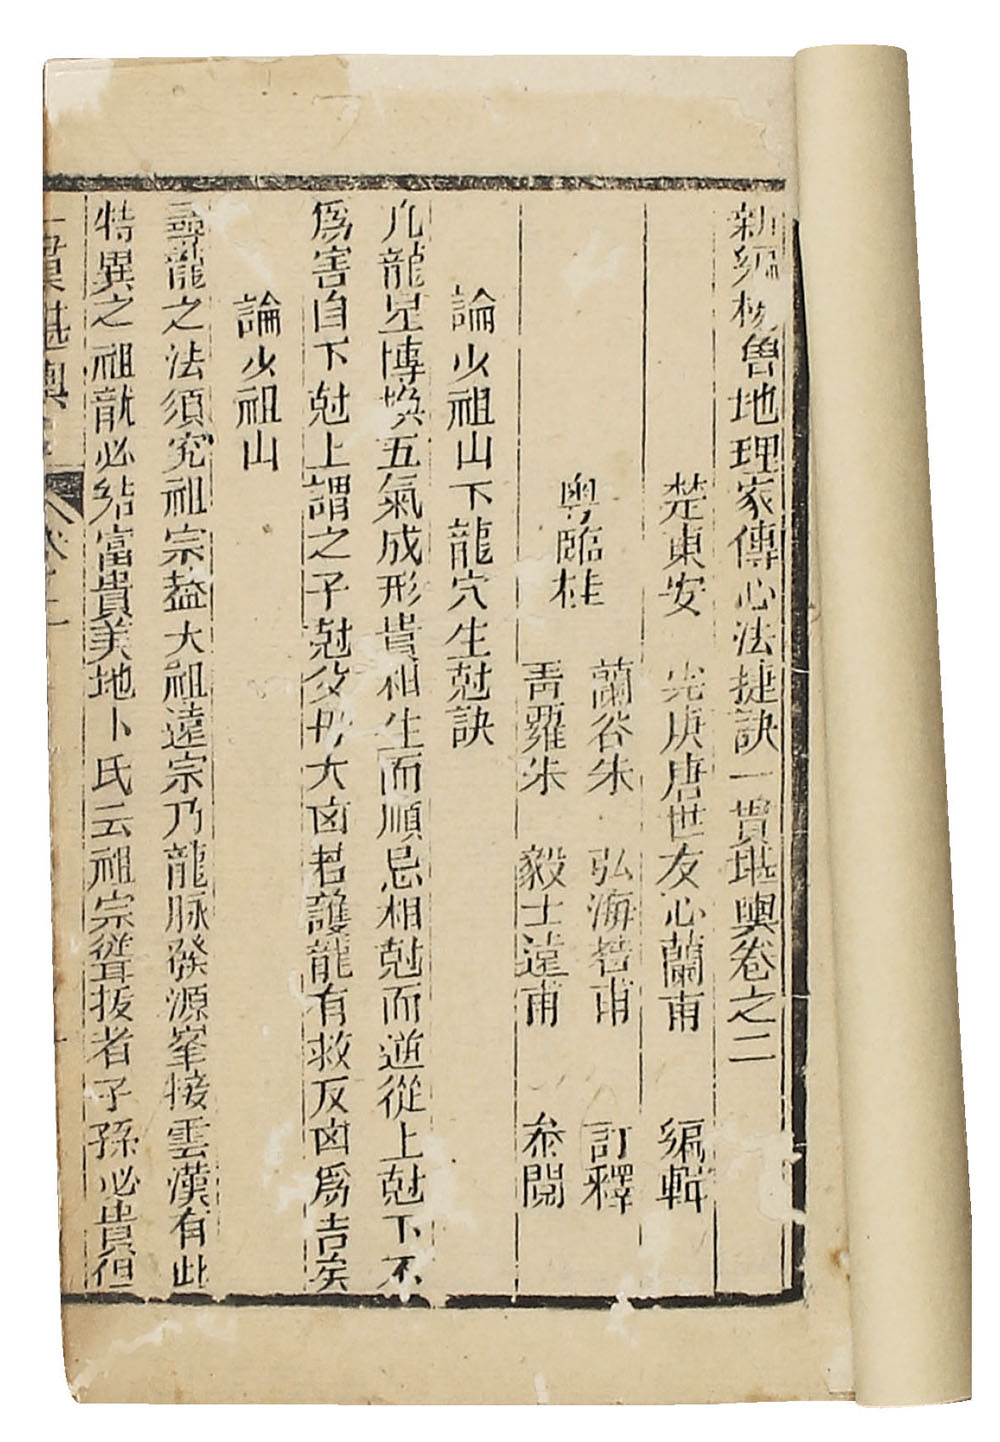 新編楊曾地理家傳心法捷訣一貫堪輿卷之二
楚東安 先庚唐世友心蘭甫 編輯
粵臨桂
蘭谷朱 弘海若甫 訂釋
青蘿朱 毅士遠甫 叅閱
論少祖山下龍穴生尅訣
凡龍星博換五氣成形貴相生而順忌相尅而逆從上尅下不
爲害自下尅上謂之子尅父母大凶君護龍有救反凶爲吉矣
論少祖山
尋龍之法須究祖宗葢大祖遠宗乃龍脉發源峯接雲漢有此
特異之祖龍必結富貴美地卜氏云祖宗聳拔者子孫必貴但
一貫堪輿 卷之二